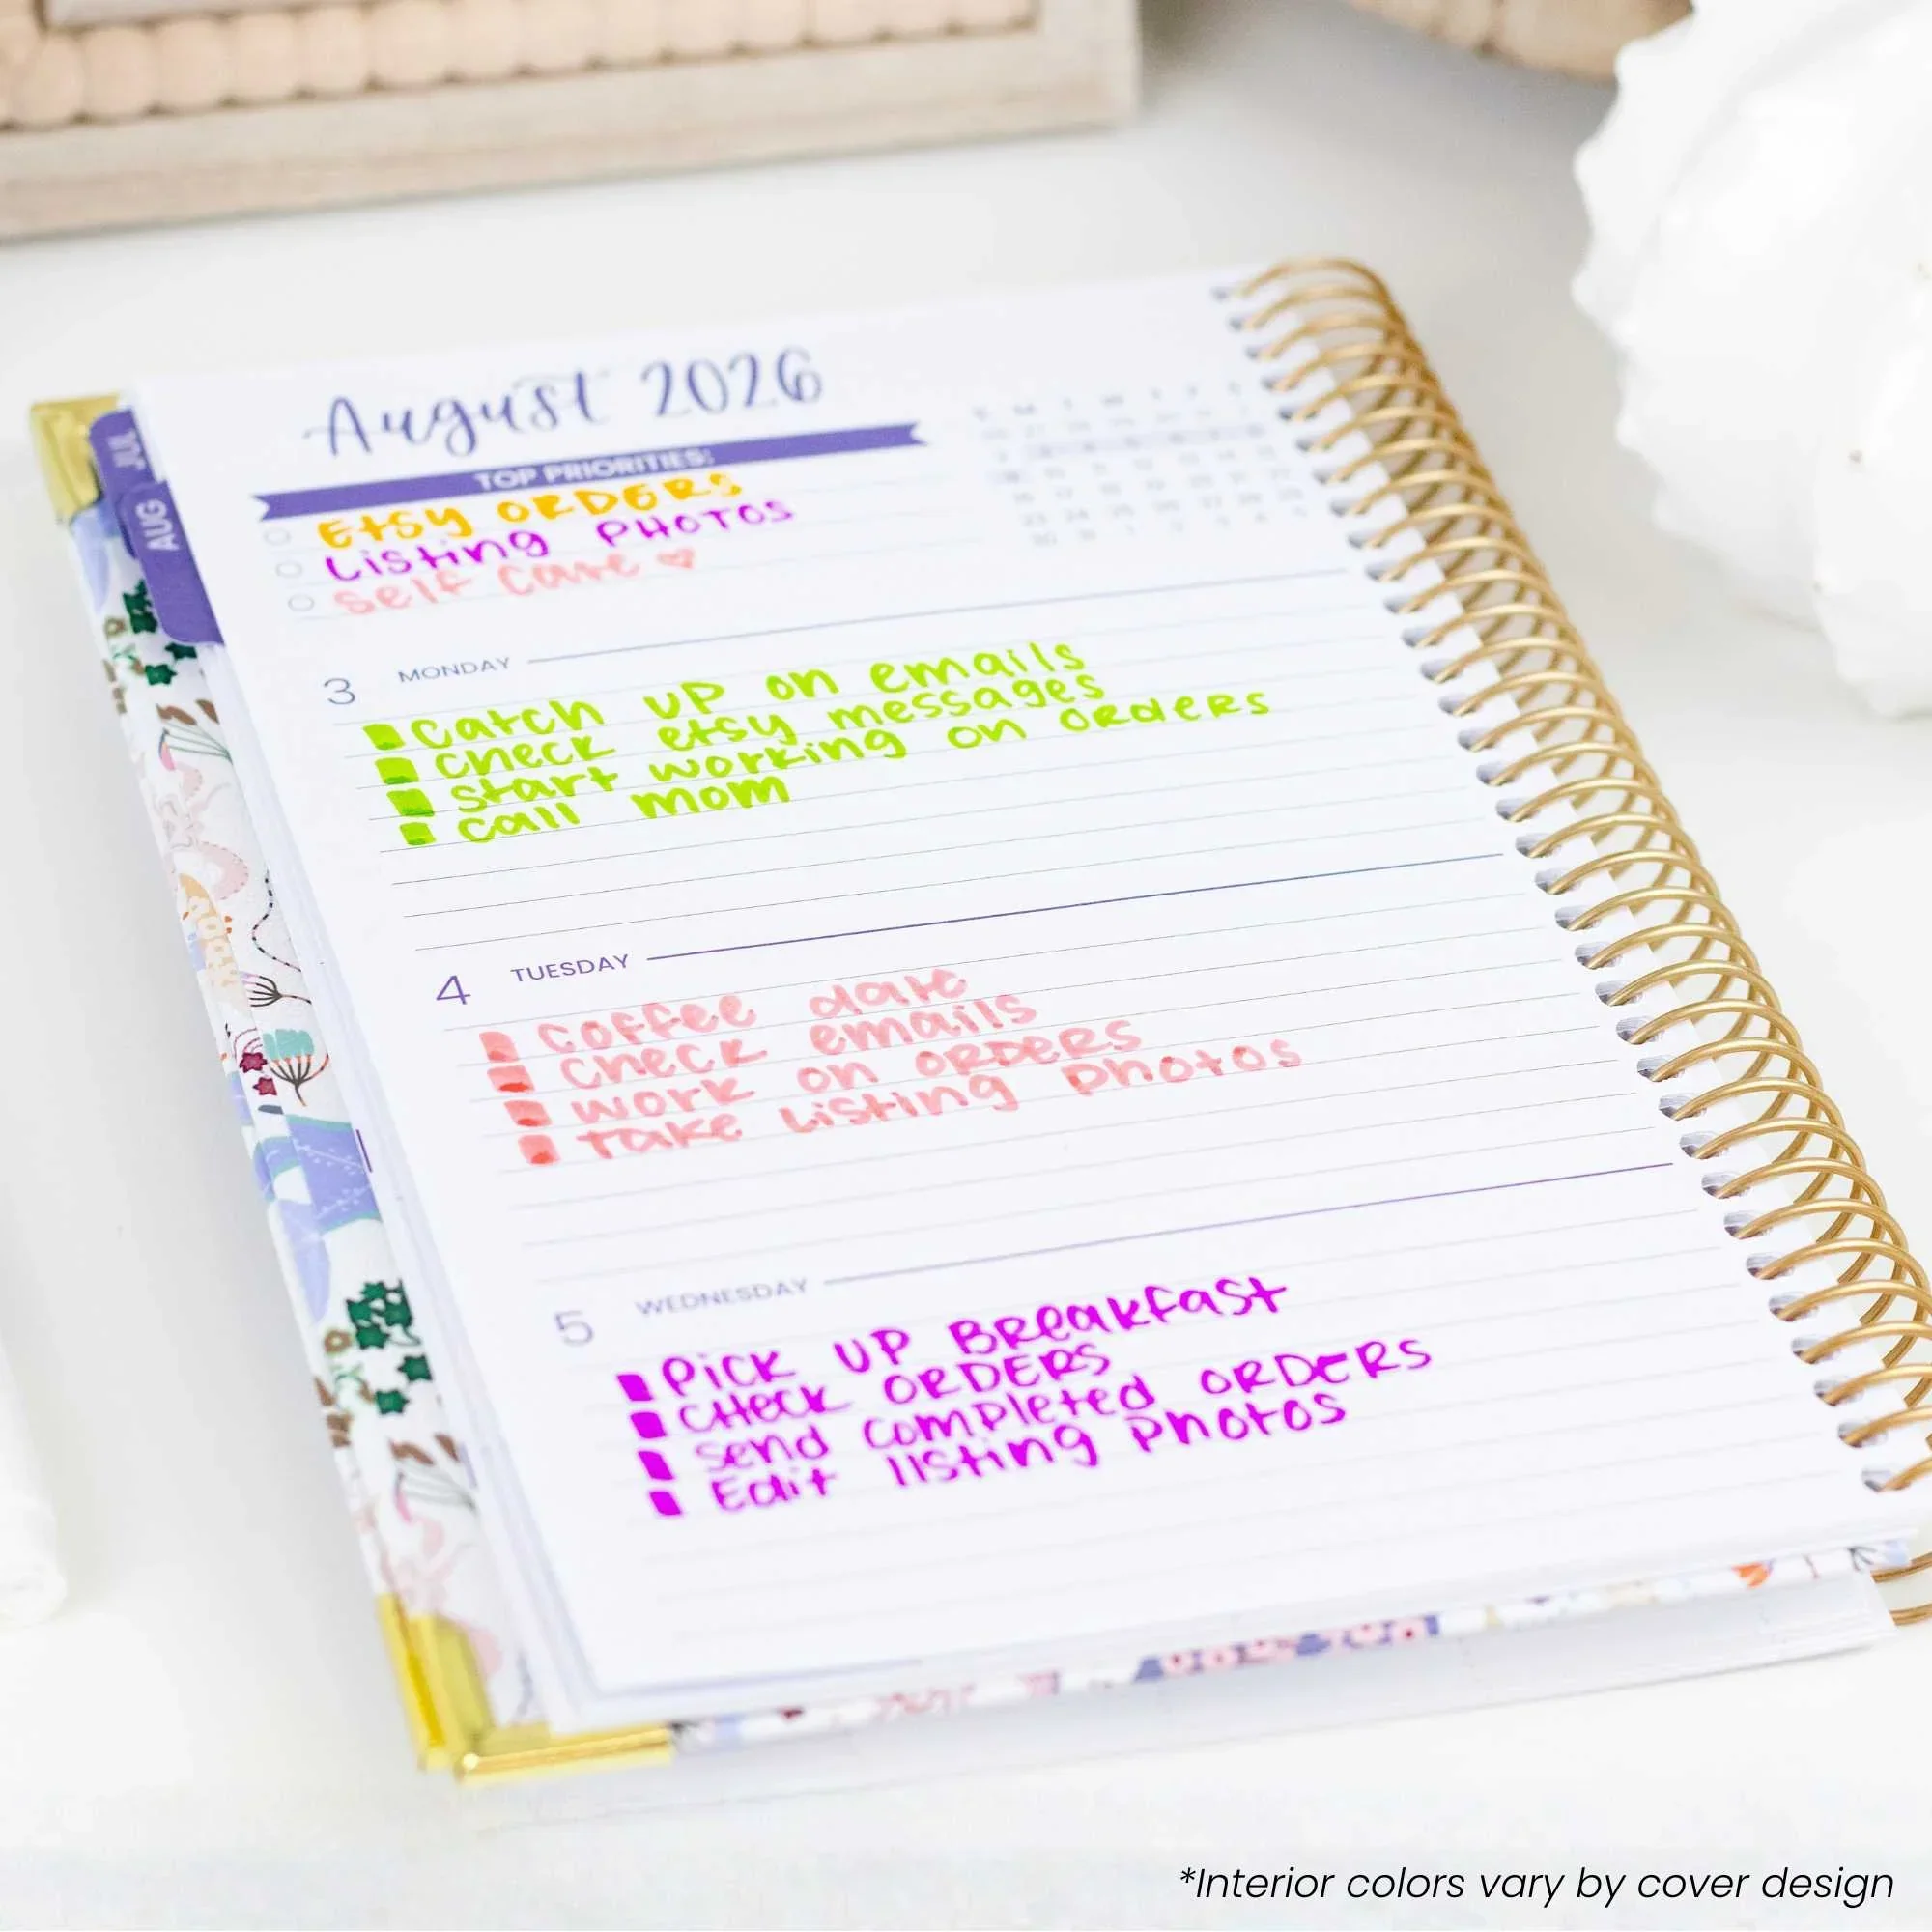 August 2026
TOP PRIORITIES:
Etsy ORDERS
Listing PHOTOS
Self Care
JUL
AUG
3 MONDAY
Catch up on emails
check etsy messages
start working on orders
call mom
4 TUESDAY
coffee date
check emails
work on ORDERS
take listing photos
5 WEDNESDAY
Pick UP BReakfast
CHeck ORDERS
send completed ORDERS
Edit listing photos
*Interior colors vary by cover design